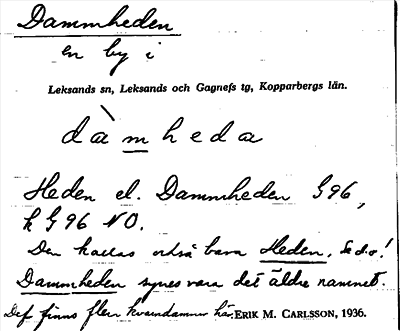 Dammheden
en by i
Leksands sn, Leksands och Gagnefs tg, Kopparbergs län.
dàmheda
Heden el. Dammheden G96,
h G96 NO.
Den kallas också bara Heden. Se d.o!
Dammheden synes vara det äldre namnet.
Det finns flera kvarndammar här. ERIK M. CARLSSON, 1936.